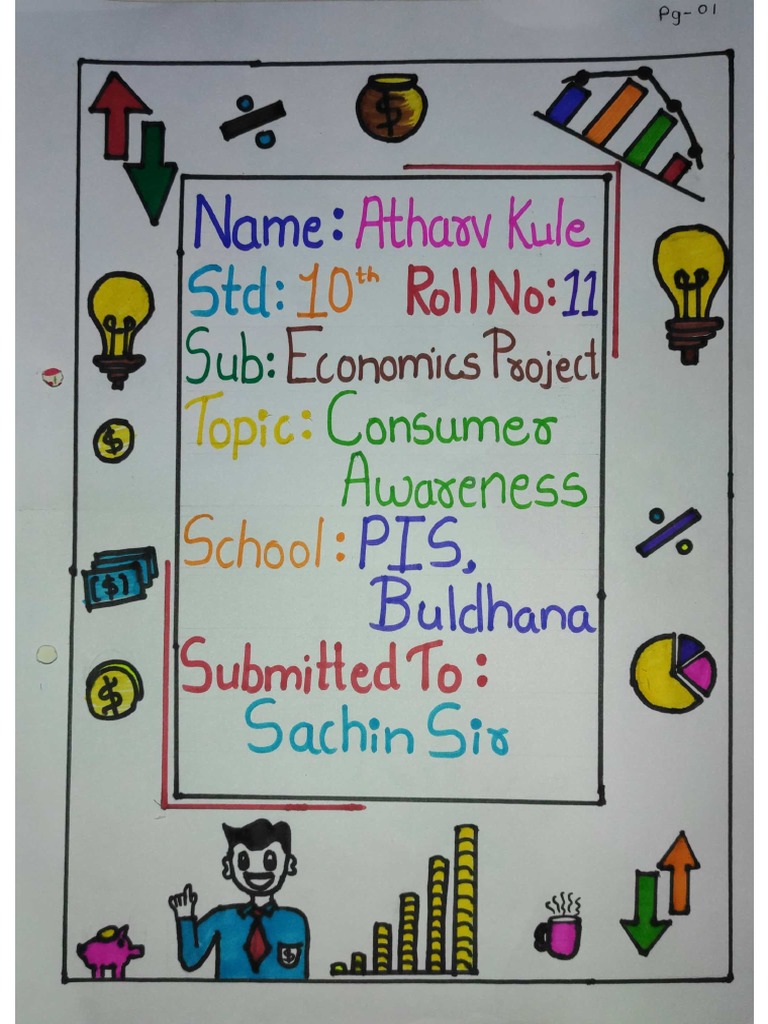 Pg-01
Name: Atharv Kule
Std: 10th Roll No: 11
Sub: Economics Project
Topic: Consumer
Awareness
School: PIS,
Buldhana
Submitted To:
Sachin Sir